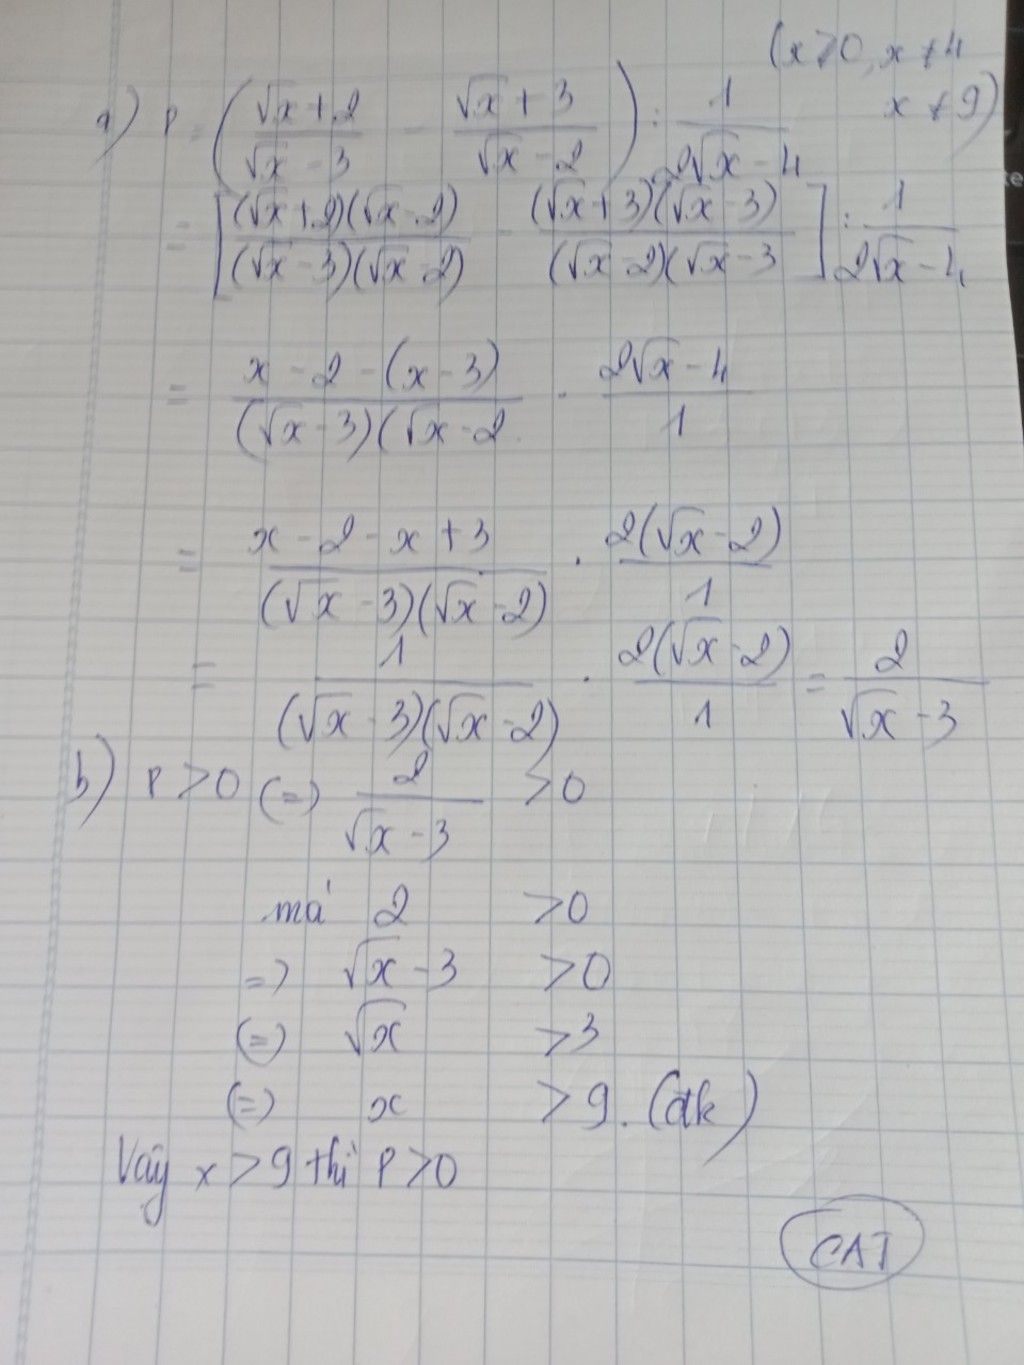 (x ⩾ 0, x ≠ 4
x ≠ 9)
a) P = ( (√x + 2)/(√x - 3) - (√x + 3)/(√x - 2) ) : 1/(2√x - 4)
= [ (√x + 2)(√x - 2)/(√x - 3)(√x - 2) - (√x + 3)(√x - 3)/(√x - 2)(√x - 3 ] : 1/(2√x - 4)
= (x - 2 - (x - 3))/(√x - 3)(√x - 2 . (2√x - 4)/1
= (x - 2 - x + 3)/(√x - 3)(√x - 2) . 2(√x - 2)/1
= 1/(√x - 3)(√x - 2) . 2(√x - 2)/1 = 2/(√x - 3)
b) P > 0 (=) 2/(√x - 3) > 0
mà 2 > 0
=) √x - 3 > 0
(=) √x > 3
(=) x > 9. (đk)
Vậy x > 9 thì P > 0
CAT